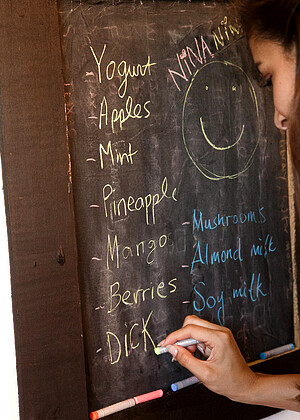 NiNA NiNA
- Yogurt
- Apples
- Mint
- Pineapple
- Mango
- Berries
- DiCK
- Mushrooms
- Almond milk
- Soy milk